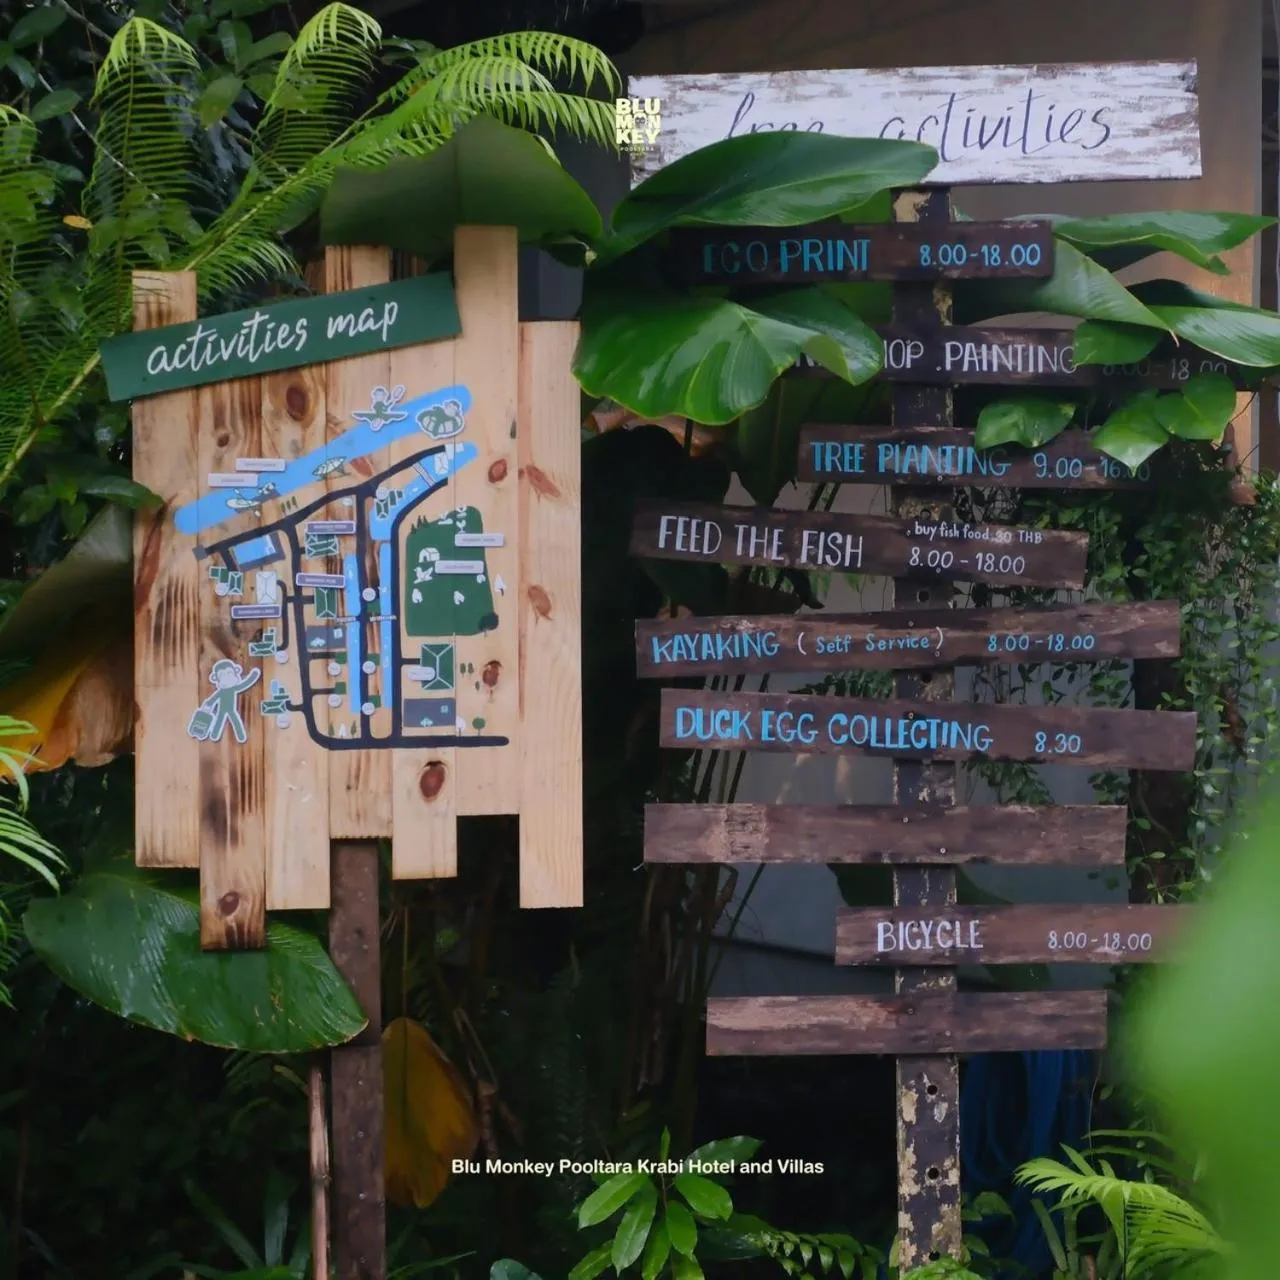 BLU
MON
KEY
POOLTARA
free activities
activities map
ECO PRINT 8.00-18.00
PAINTING 8.00-18.00
TREE PLANTING 9.00-16.00
FEED THE FISH
. buy fish food 30 THB
8.00-18.00
KAYAKING ( Self Service ) 8.00-18.00
DUCK EGG COLLECTING 8.30
BICYCLE 8.00-18.00
Blu Monkey Pooltara Krabi Hotel and Villas